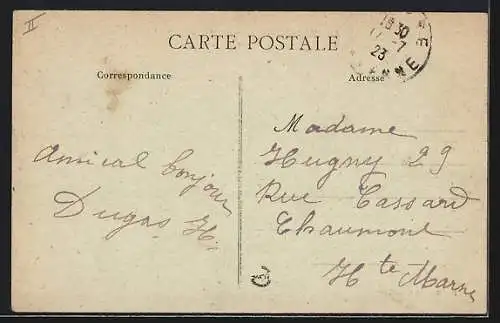 II
CARTE POSTALE
Correspondance
Adresse
18 30
23
Amical bonjour
Dugas H
Madame
Hugny 29
Rue Tassard
Chaumont
Hte Marne